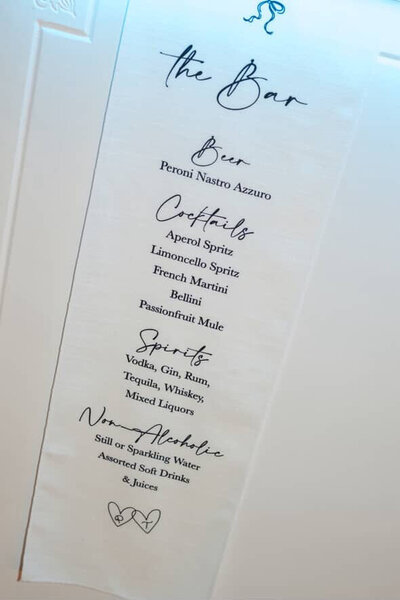 the Bar
Beer
Peroni Nastro Azzuro
Cocktails
Aperol Spritz
Limoncello Spritz
French Martini
Bellini
Passionfruit Mule
Spirits
Vodka, Gin, Rum,
Tequila, Whiskey,
Mixed Liquors
Non-Alcoholic
Still or Sparkling Water
Assorted Soft Drinks
& Juices